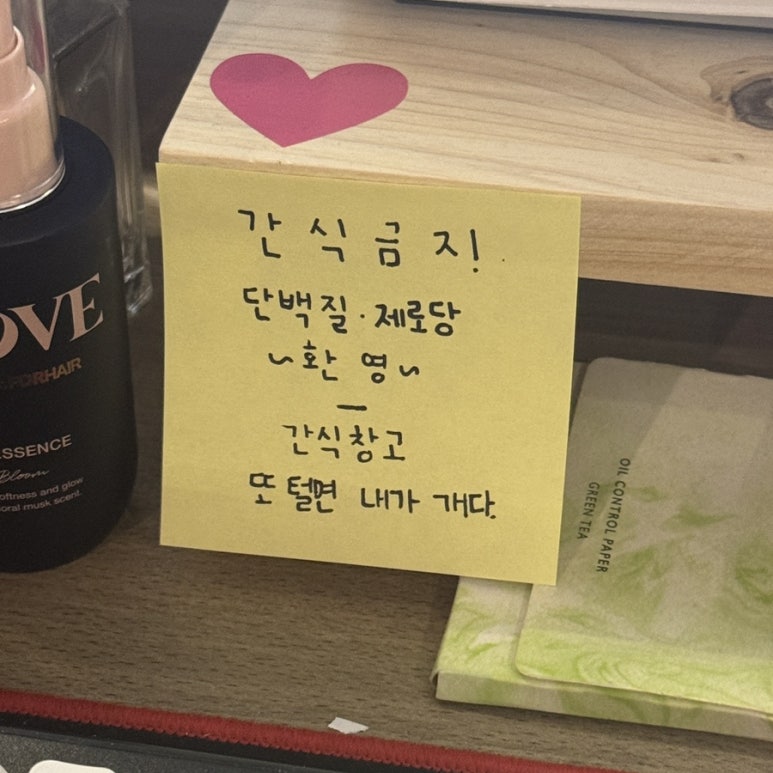 간식금지!
단백질·제로당
~환영~
—
간식창고
또 털면 내가 개다.
OVE
FORHAIR
ESSENCE
Bloom
oftness and glow
oral musk scent.
OIL CONTROL PAPER
GREEN TEA